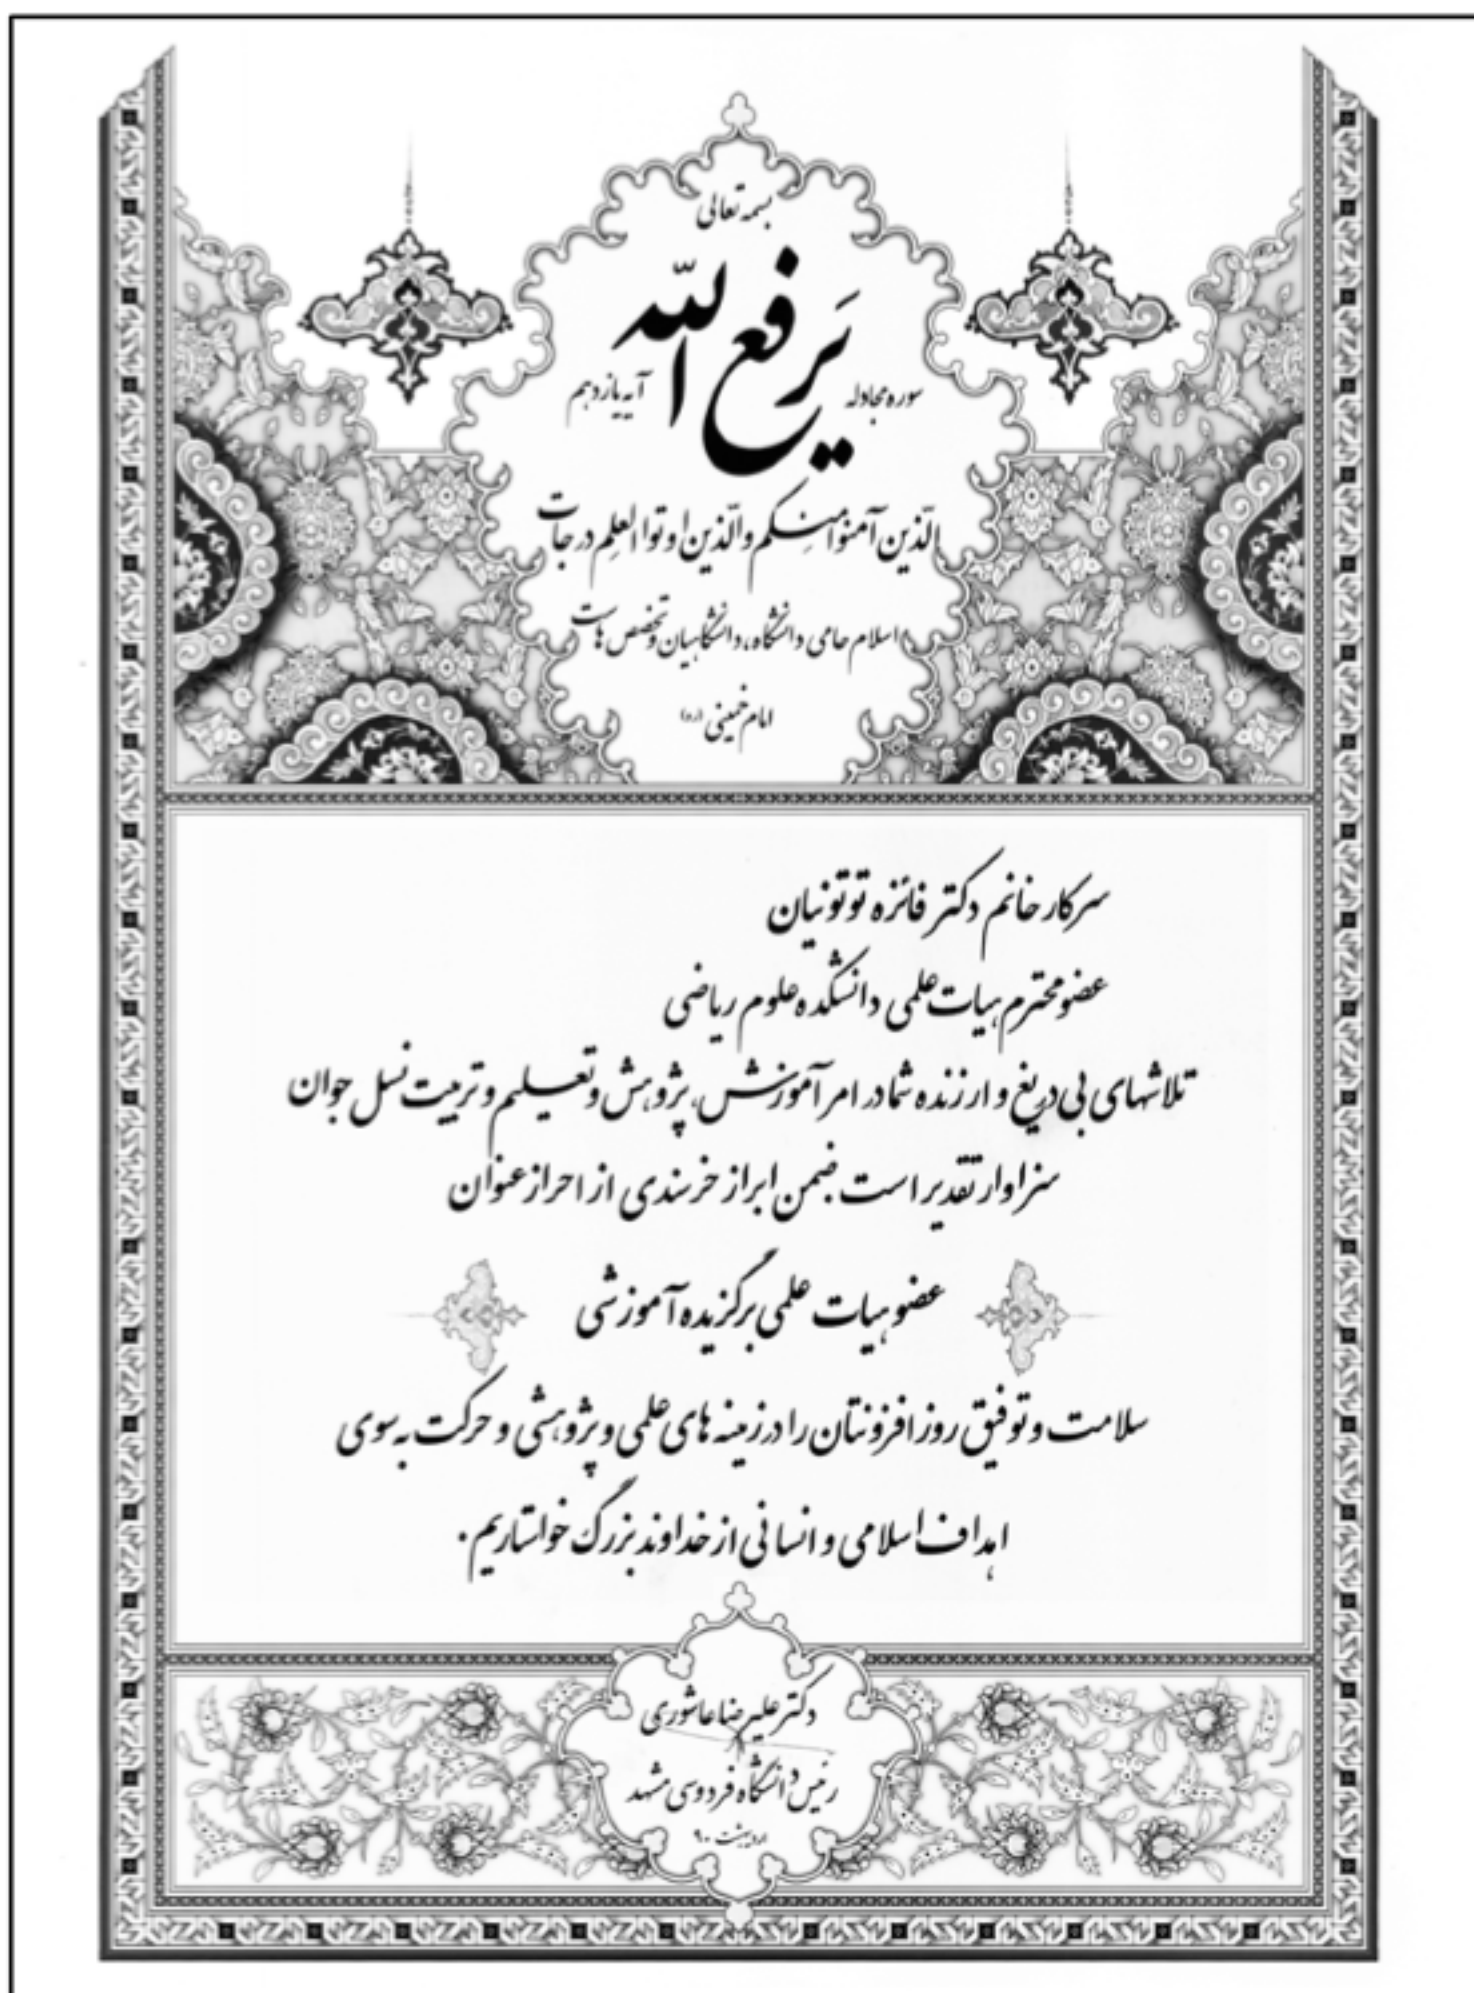 بسمه تعالی
یَرفع اللّه
سوره مجادله
آیه یازدهم
الّذین آمنوا منِکم والّذین اوتوا العلِم درجات
اسلام حامی دانشگاه، دانشگاهیان و تخصص هاست
امام خمینی (ره)
سرکار خانم دکتر فائزه توتونیان
عضو محترم هیات علمی دانشکده علوم ریاضی
تلاشهای بی دریغ و ارزنده شما در امر آموزش، پژوهش و تعلیم و تربیت نسل جوان
سزاوار تقدیر است ضمن ابراز خرسندی از احراز عنوان
عضو هیات علمی برگزیده آموزشی
سلامت و توفیق روز افزونتان را در زمینه های علمی و پژوهشی و حرکت به سوی
اهداف اسلامی و انسانی از خداوند بزرگ خواستاریم.
دکتر علیرضا عاشوری
رئیس دانشگاه فردوسی مشهد
اردیبهشت ۹۰